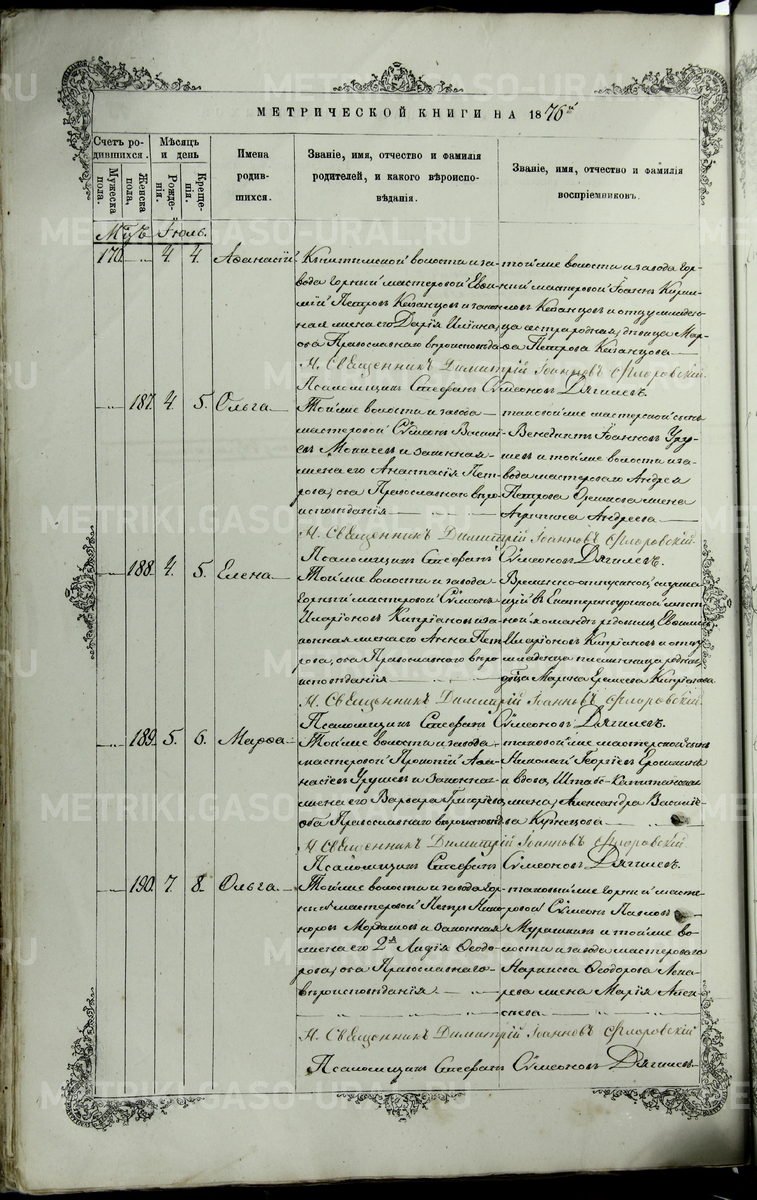 МЕТРИЧЕСКОЙ КНИГИ НА 1876й
Счетъ ро-
дившихся.
Мѣсяцъ
и день
Мужеска
пола.
Женска
пола.
Рожде-
нія.
Креще-
нія.
Имена
родив-
шихся.
Званіе, имя, отчество и фамилія
родителей, и какого вѣроиспо-
вѣданія.
Званіе, имя, отчество и фамилія
воспріемниковъ.
Мцъ Іюль.
170. 4. 4. Аѳанасій.
Кыштымской волости и за-
вода Горный мастеровой Евѳи-
мій Петровъ Казанцовъ и закон-
ная жена его Дарія Ильина,
оба Православнаго вѣроисповѣда-
той же волости и завода Гор-
ный мастеровой Іоаннъ Кирил-
ловъ Казанцовъ и отцу младен-
ца сестра родная, дѣвица Мар-
ѳа Петрова Казанцова
Н. Священникъ Димитрій Іоанновъ Флоровскій.
Псаломщикъ Стефанъ Сѵмеоновъ Дягилевъ.
187. 4. 5. Ольга
Той же волости и завода
мастеровой Сѵмеонъ Васил-
евъ Моисеевъ и законная
жена его Анастасія Пет-
рова, оба Православнаго вѣро-
исповѣданія
таковой же мастерской сынъ
Венедиктъ Іоанновъ Уру-
шевъ и той же волости и за-
вода мастероваго Андрея
Петрова жена
Агрипина Андреева
Н. Священникъ Димитрій Іоанновъ Флоровскій.
Псаломщикъ Стефанъ Сѵмеоновъ Дягилевъ.
188. 4. 5. Елена
Той же волости и завода
Горный мастеровой Сѵмеонъ
Иларіоновъ Кипріановъ и за-
конная жена его Анна Пет-
рова, оба Православнаго вѣро-
исповѣданія
Временно-отпускной, служа-
щій въ Екатеринбургской мѣст-
ной командѣ рядовымъ, Евѳимій
Иларіоновъ Кипріановъ и отцу
младенца племянница родная,
дѣвица Марина Кипріанова
Н. Священникъ Димитрій Іоанновъ Флоровскій.
Псаломщикъ Стефанъ Сѵмеоновъ Дягилевъ.
189. 5. 6. Марѳа
Той же волости и завода
мастеровой Прокопій Аѳа-
насіевъ Урушевъ и законная
жена его Варвара Григоріева,
оба Православнаго вѣроисповѣд.
таковой же мастерской сынъ
Николай Георгіевъ Ерошкинъ
и вдова, Штабс-Капитанская
жена, Александра Василіе-
ва Кузнецова
Н. Священникъ Димитрій Іоанновъ Флоровскій
Псаломщикъ Стефанъ Сѵмеоновъ Дягилевъ.
190. 7. 8. Ольга
Той же волости и завода Гор-
ный мастеровой Петръ Ника-
норовъ Мордашовъ и законная
жена его 2я Лидія Ѳеодо-
рова, оба Православнаго
вѣроисповѣданія
таковый же горный масте-
ровой Сѵмеонъ Павловъ
Мурашкинъ и той же во-
лости и завода мастероваго
Наркисса Ѳеодорова
жена Марія Алек-
сѣева
Н. Священникъ Димитрій Іоанновъ Флоровскій
Псаломщикъ Стефанъ Сѵмеоновъ Дягилевъ
METRIKI.GASO-URAL.RU